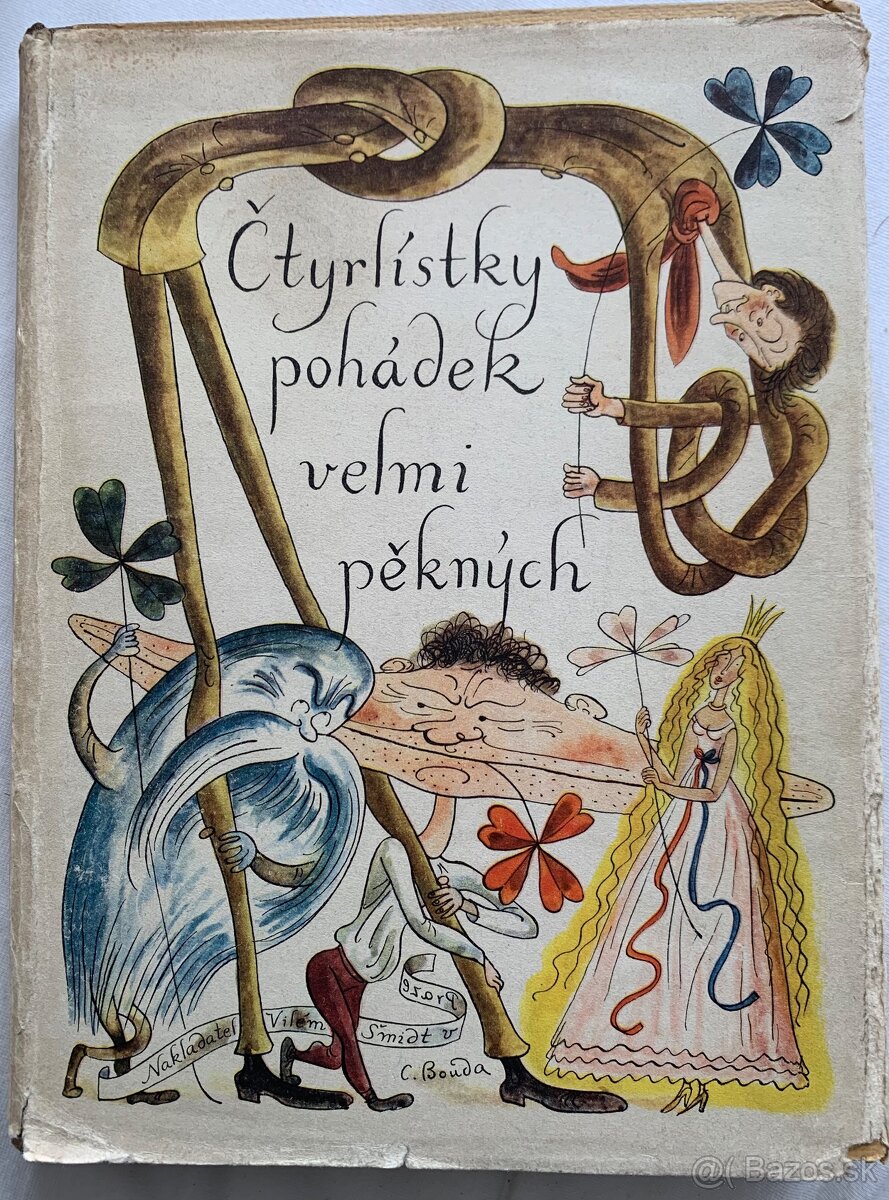 Čtyrlístky
pohádek
velmi
pěkných
Nakladatel Vilém Šmidt v Praze
C. Bouda
@( Bazos.sk